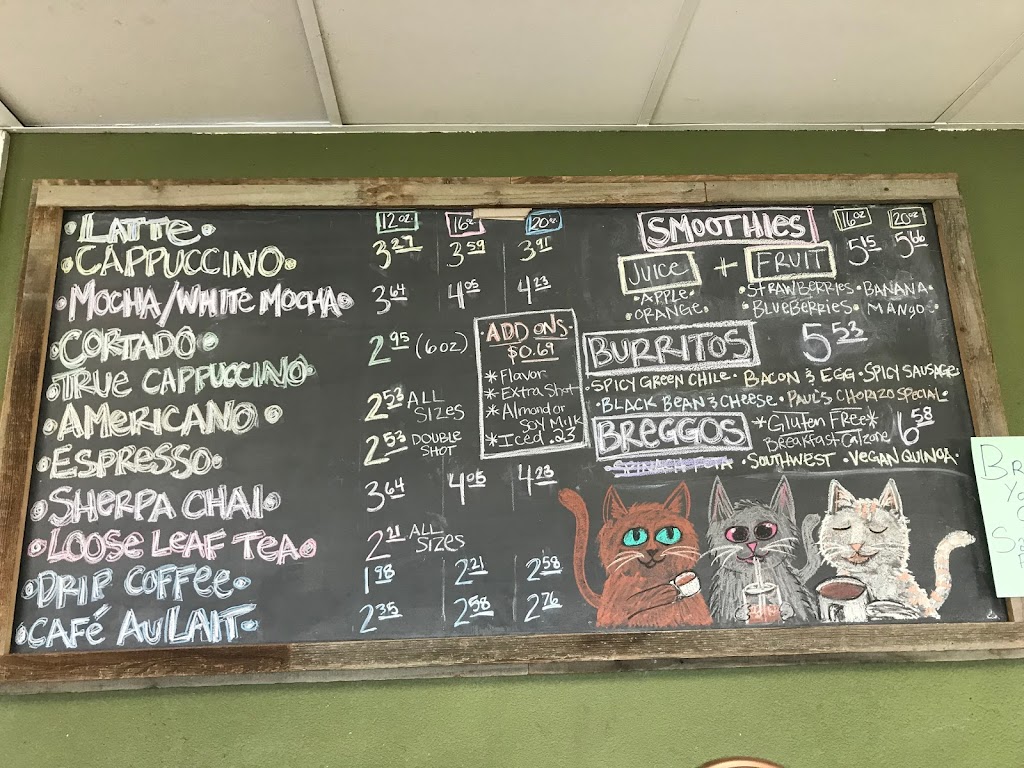 12 oz. 16 oz 20 oz.
LATTE
CAPPUCCINO 3.27 3.59 3.91
MOCHA/WHITE MOCHA 3.64 4.05 4.23
CORTADO 2.95 (6oz)
TRUE CAPPUCCINO
AMERICANO 2.53 ALL SIZES
ESPRESSO 2.53 DOUBLE SHOT
SHERPA CHAI 3.64 4.05 4.23
LOOSE LEAF TEA 2.21 ALL SIZES
DRIP COFFEE 1.98 2.21 2.58
CAFÉ AU LAIT 2.35 2.58 2.76
ADD ONS
$0.69
* Flavor
* Extra Shot
* Almond or
Soy Milk
* Iced .23
SMOOTHIES 16 oz 20 oz
5.15 5.66
JUICE + FRUIT
•APPLE• •STRAWBERRIES• BANANA•
ORANGE• •BLUEBERRIES• MANGO•
BURRITOS 5.53
•SPICY GREEN CHILE• BACON & EGG •SPICY SAUSAGE•
•BLACK BEAN & CHEESE •PAUL'S CHORIZO SPECIAL•
BREGGOS *Gluten Free* 6.58
Breakfast Calzone
•SPINACH FETA •SOUTHWEST •VEGAN QUINOA•